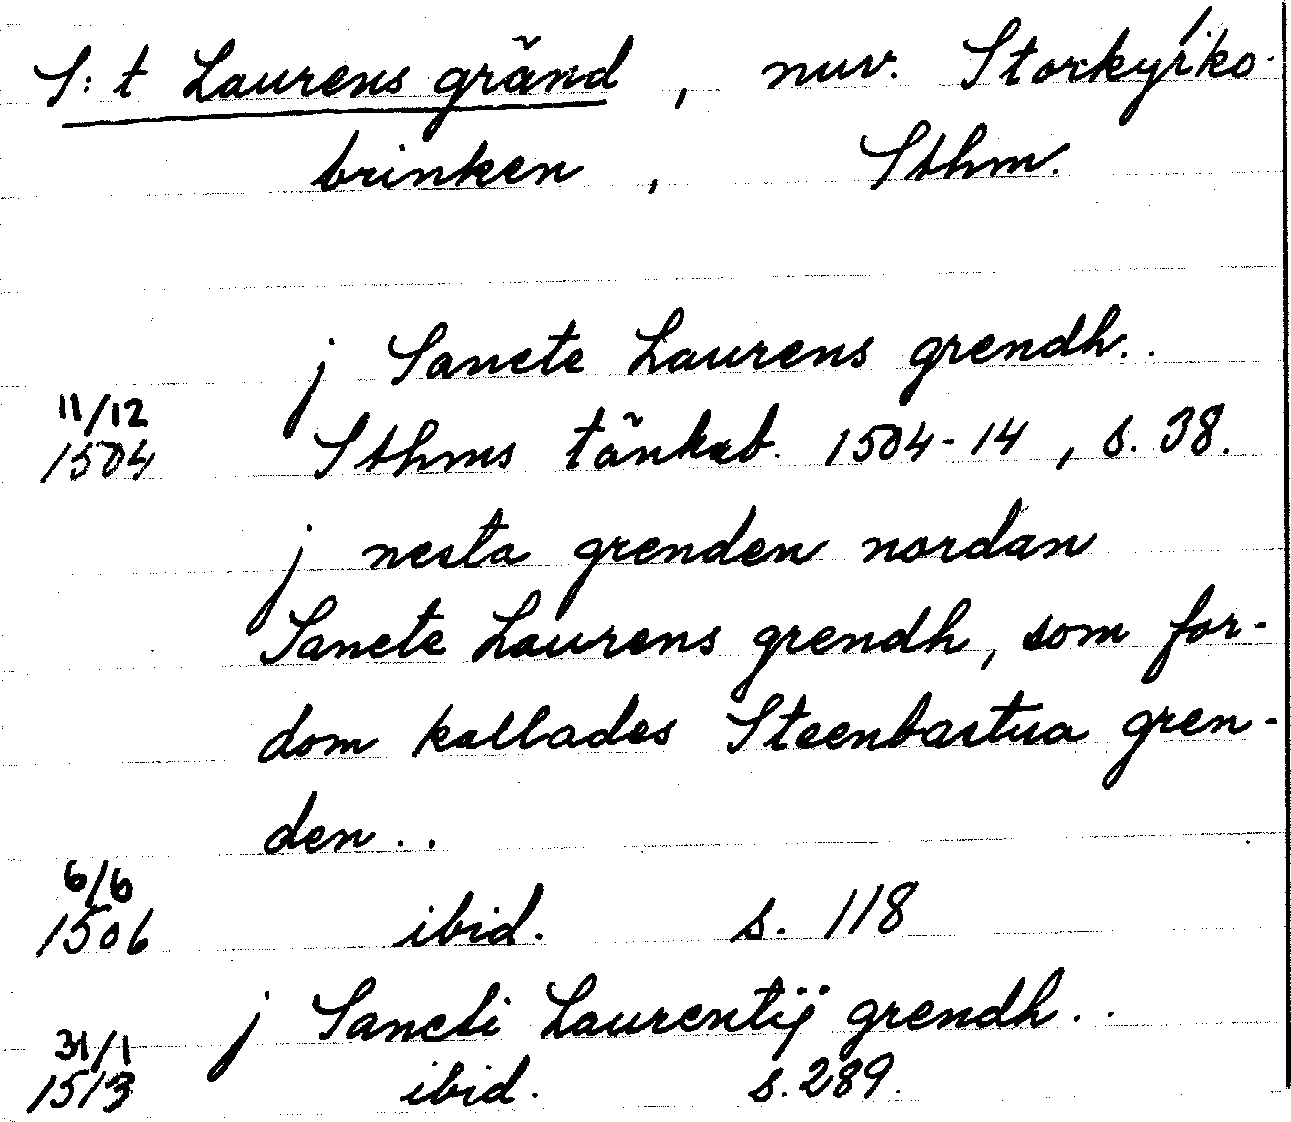 S:t Laurens gränd, nuv. Storkyrko-
brinken, Sthm.
j Sancte Laurens grendh..
11/12
1504 Sthms tänkeb. 1504-14, s. 38.
j nesta grenden nordan
Sancte Laurens grendh, som for-
dom kallades Steenbastua gren-
den..
6/6
1506 ibid. s. 118
j Sancti Laurentij grendh..
31/1
1513 ibid. s. 289.